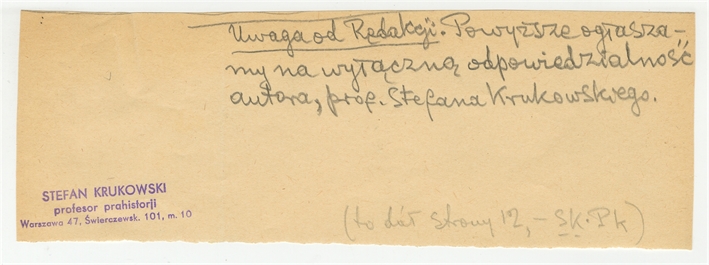 Uwaga od Redakcji. Powyższe ogłasza-
my na wyłączną odpowiedzialność
autora, prof. Stefana Krukowskiego.
STEFAN KRUKOWSKI
profesor prahistorji
Warszawa 47, Świerczewsk. 101, m. 10
(to dół strony 12, – SK. Pk)